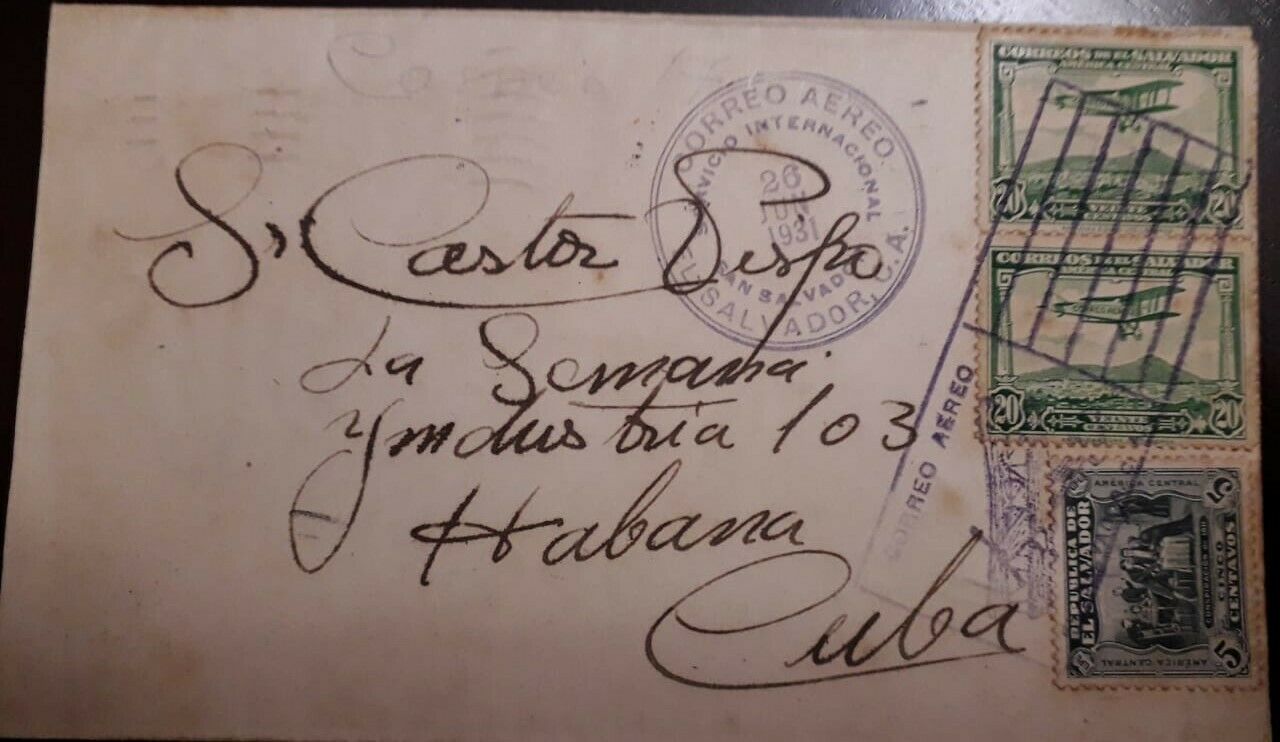 CORREO AEREO
SERVICIO INTERNACIONAL
26
1931
SAN SALVADOR
EL SALVADOR, C.A.
CORREOS DE EL SALVADOR
AMÉRICA CENTRAL
20 VEINTE 20
CENTAVOS
CORREOS DE EL SALVADOR
AMÉRICA CENTRAL
20 VEINTE 20
CENTAVOS
CORREO AÉREO
AMÉRICA CENTRAL
REPUBLICA DE
EL SALVADOR
5
CINCO
CENTAVOS
5
AMÉRICA CENTRAL
Sr Castor Dispo
La Semana
Yndustria 103
Habana
Cuba